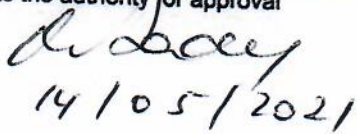 the authority for approval
14/05/2021